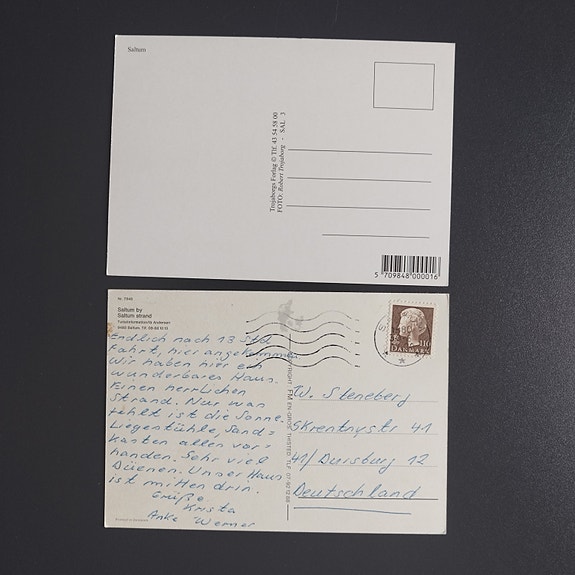 Saltum
Trojaborgs Forlag © Tlf. 43 54 58 00
FOTO: Robert Trojaborg - SAL 3
5 709848 000016
Nr. 7646
Saltum by
Saltum strand
9493 Saltum. Tlf. 08-88 13 13
Endlich nach 13 Std
Fahrt, hier angekommen.
Wir haben hier ein
wunderbares Haus.
Einen herrlichen
Strand. Nur was
fehlt ist die Sonne.
Liegestühle, Sand=
Kasten alles vor=
handen. Sehr viel
Düenen. Unser Haus
ist mitten drin.
Grüße
Krista
Anke Werner
Printed in Denmark
110
DANMARK
W. Steneberg
Skrentnystr 41
41/Duisburg 12
Deutschland